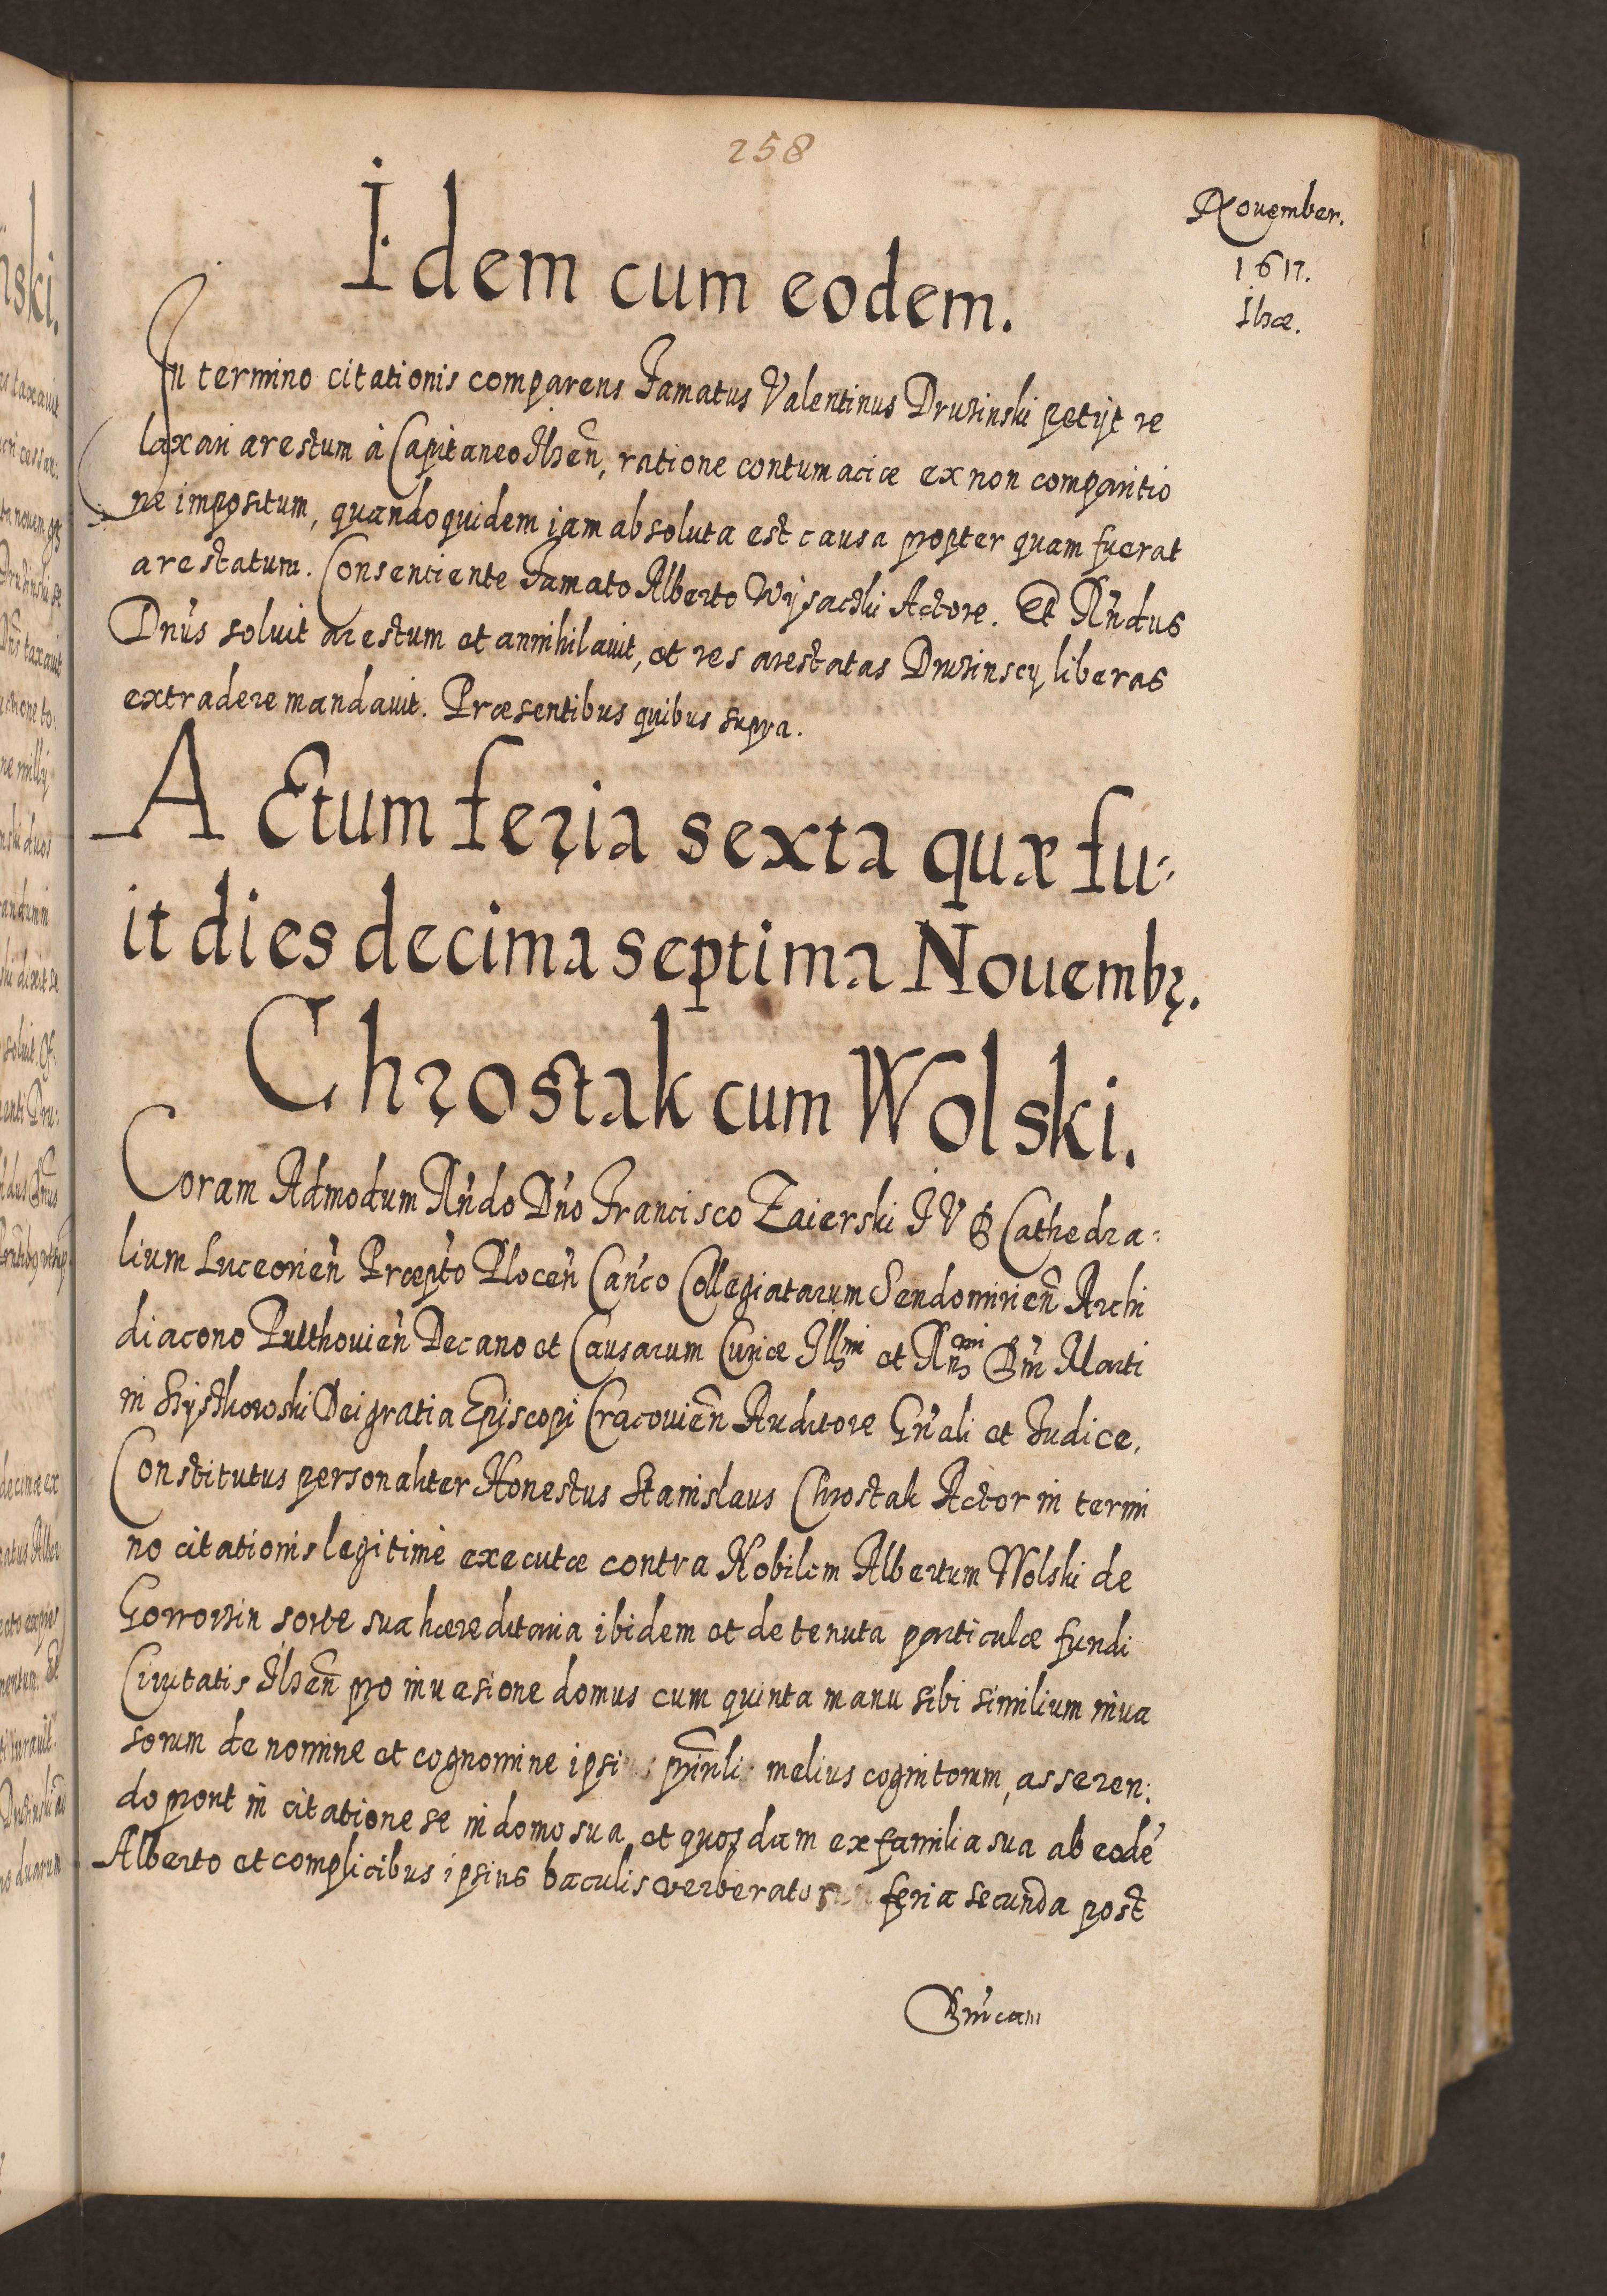 258
November.
1617.
Ilzæ.
Idem cum eodem.
In termino citationis comparens Famatus Valentinus Druzinski petijt re
laxari arestum à Capitaneo Ilzen̄, ratione contumaciæ ex non comparitio
ne impositum, quandoquidem iam absoluta est causa propter quam fuerat
arestatum. Consenciente Famato Alberto Wysaczki Actore. Et Rn̄dus
Dn̄s soluit arestum et annihilauit, et res arestatas Druzinscy liberas
extradere mandauit. Præsentibus quibus supra.
ACtum feria sexta quæ fu-
it dies decima septima Nouembr.
Chrostak cum Wolski.
Coram Admodum Rn̄do Dn̄o Francisco Zaierski IVD Cathedra-
lium Luceorien̄ Præpto Plocen̄ Can̄co Collegiatarum Sendomirien̄ Archi
diacono Pulthouien̄ Decano et Causarum Curiæ Illmi et Rn̄mi Dn̄i Marti
ni Szyszkowski Dei gratia Episcopi Cracouien̄ Auditore Gn̄ali et Iudice.
Constitutus personaliter Honestus Stanislaus Chrostak Actor in termi
no citationis legitimè executæ contra Nobilem Albertum Wolski de
sorte sua hæreditaria ibidem et de tenuta particulæ fundi
Ciuitatis Ilzen̄ pro inuasione domus cum quinta manu sibi similium inua
sorum de nomine et cognomine melius cognitorum, asseren:
do prout in citatione se in domo sua et quosdam ex familia sua ab eodē
Alberto et complicibus ipsius baculis feria secunda post
Dn̄icam